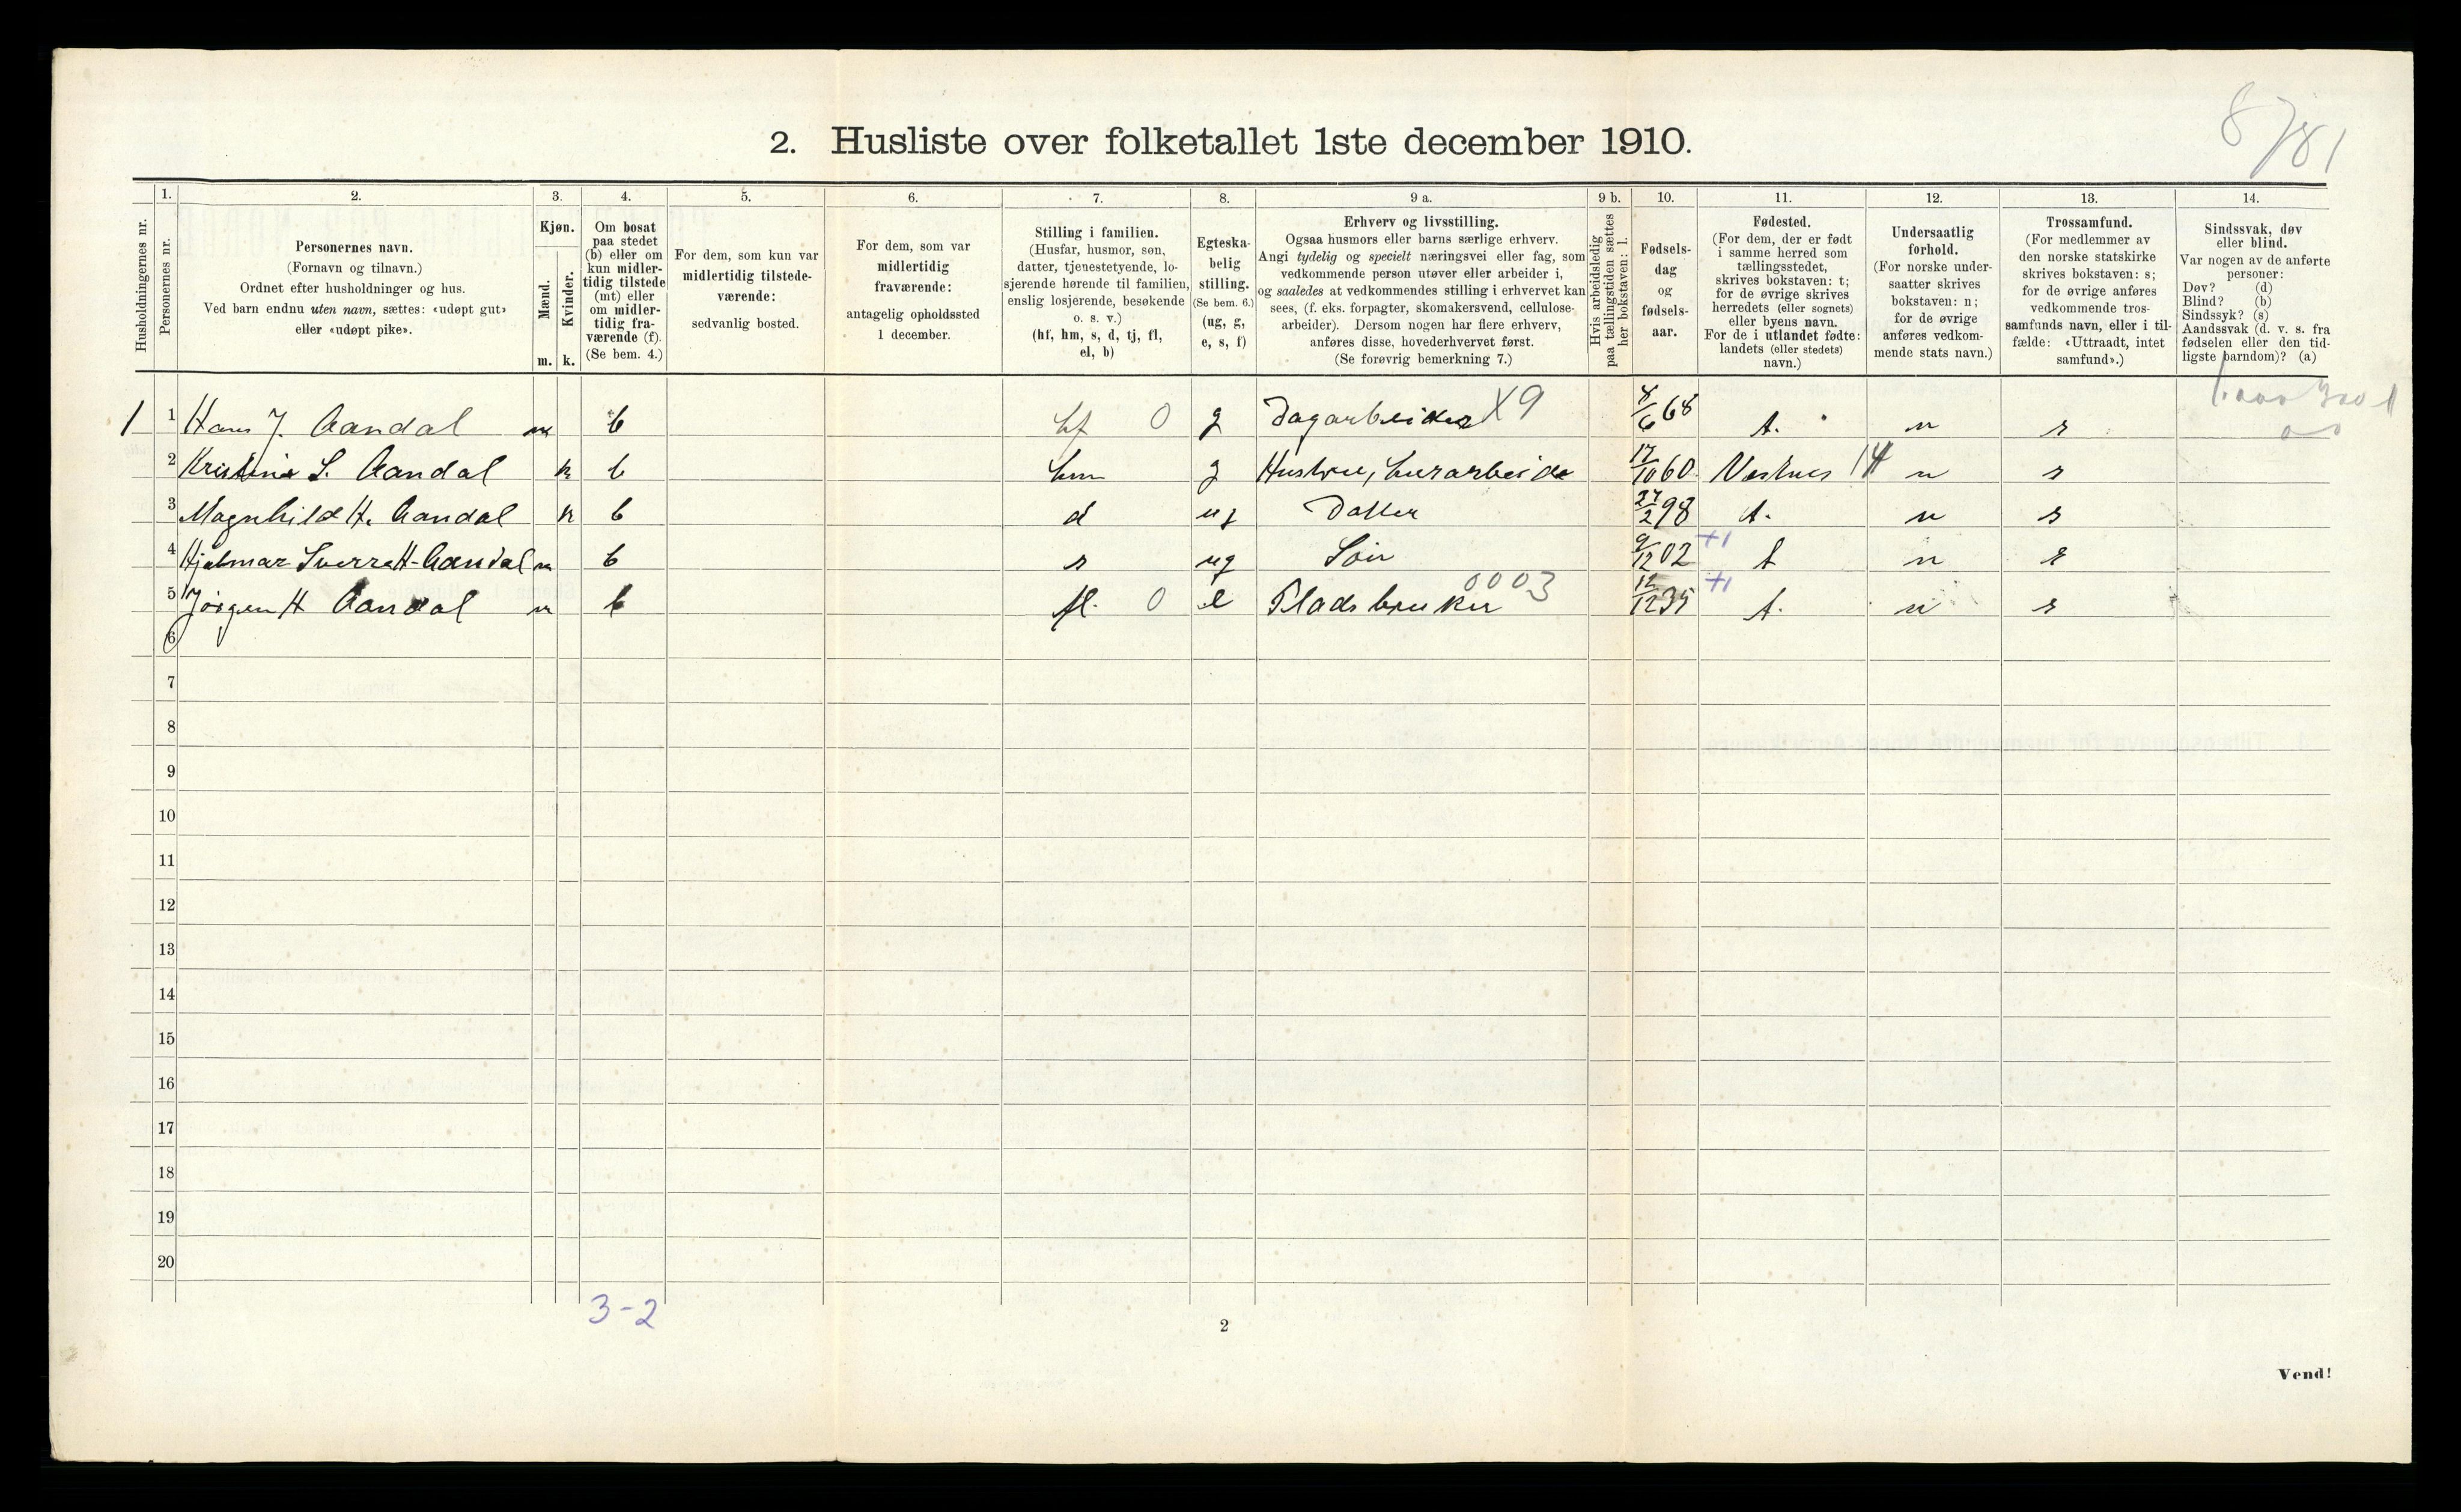 8/781
2. Husliste over folketallet 1ste december 1910.
Husholdningernes nr.
1.
Personernes nr.
2.
Personernes navn.
(Fornavn og tilnavn.)
Ordnet efter husholdninger og hus.
Ved barn endnu uten navn, sættes: «udøpt gut»
eller «udøpt pike».
3.
Kjøn.
Mænd.
Kvinder.
m. k.
4.
Om bosat
paa stedet
(b) eller om
kun midler-
tidig tilstede
(mt) eller
om midler-
tidig fra-
værende (f).
(Se bem. 4.)
5.
For dem, som kun var
midlertidig tilstede-
værende:
sedvanlig bosted.
6.
For dem, som var
midlertidig
fraværende:
antagelig opholdssted
1 december.
7.
Stilling i familien.
(Husfar, husmor, søn,
datter, tjenestetyende, lo-
sjerende hørende til familien,
enslig losjerende, besøkende
o. s. v.)
(hf, hm, s, d, tj, fl,
el, b)
8.
Egteska-
belig
stilling.
(Se bem. 6.)
(ug, g,
e, s, f)
9 a.
Erhverv og livsstilling.
Ogsaa husmors eller barns særlige erhverv.
Angi tydelig og specielt næringsvei eller fag, som
vedkommende person utøver eller arbeider i,
og saaledes at vedkommendes stilling i erhvervet kan
sees, (f. eks. forpagter, skomakersvend, cellulose-
arbeider). Dersom nogen har flere erhverv,
anføres disse, hovederhvervet først.
(Se forøvrig bemerkning 7.)
9 b.
Hvis arbeidsledig
paa tællingstiden sættes
her bokstaven: l.
10.
Fødsels-
dag
og
fødsels-
aar.
11.
Fødested.
(For dem, der er født
i samme herred som
tællingsstedet,
skrives bokstaven: t;
for de øvrige skrives
herredets (eller sognets)
eller byens navn.
For de i utlandet fødte:
landets (eller stedets)
navn.)
12.
Undersaatlig
forhold.
(For norske under-
saatter skrives
bokstaven: n;
for de øvrige
anføres vedkom-
mende stats navn.)
13.
Trossamfund.
(For medlemmer av
den norske statskirke
skrives bokstaven: s;
for de øvrige anføres
vedkommende tros-
samfunds navn, eller i til-
fælde: «Uttraadt, intet
samfund».)
14.
Sindssvak, døv
eller blind.
Var nogen av de anførte
personer:
Døv? (d)
Blind? (b)
Sindssyk? (s)
Aandssvak (d. v. s. fra
fødselen eller den tid-
ligste barndom)? (a)
1 1 Hans J. Aandal m b hf 0 g Dagarbeider X9 4/6 68 t. n s
2 Kristine S. Aandal k b hm g Hustru, husarbeide 17/10 60 Vestnes 14 n s
3 Magnhild H. Aandal k b d ug Datter 27/2 98 t. n s
4 Hjalmar Sverre H. Aandal m b s ug Søn 9/12 02 +1 t n s
5 Jørgen H Aandal m b fl. 0 e Pladsbruker 0003 12/12 35 +1 t. n s
6
7
8
9
10
11
12
13
14
15
16
17
18
19
20
3-2
2
Vend!